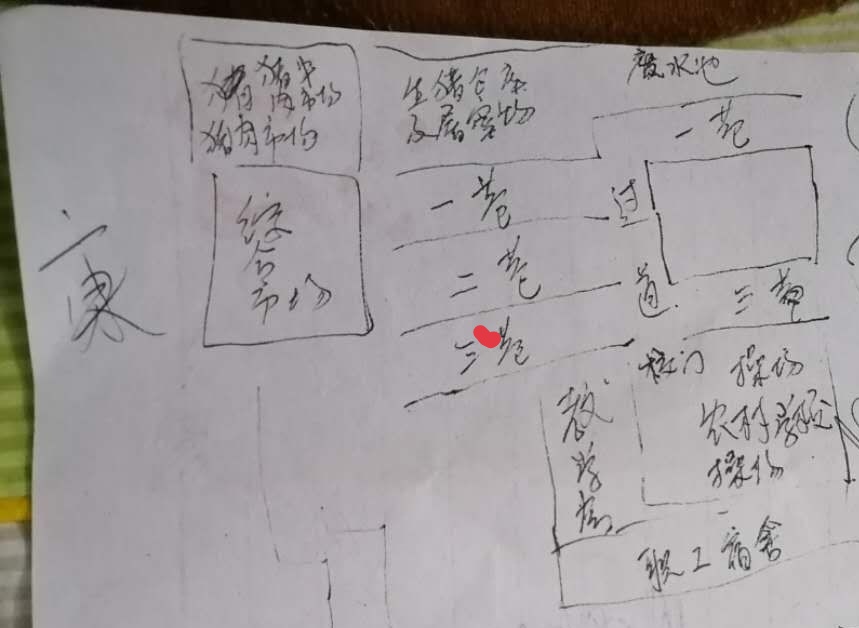 猪肉市场
生猪仓库
及屠宰场
废水池
一巷
综合市场
一巷
过道
二巷
三巷
三巷
东
校门
操场
农村学校
操场
教学楼
职工宿舍